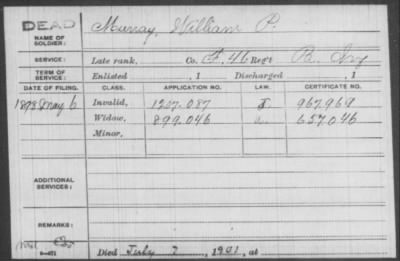 DEAD
NAME OF SOLDIER: Murray, William P.
SERVICE: Late rank, Co. F. 46 Reg't
TERM OF SERVICE: Enlisted , 1 Discharged , 1
DATE OF FILING. CLASS. APPLICATION NO. LAW. CERTIFICATE NO.
1898 May 6 Invalid, 1207.087 967.969
Widow, 899.046 657.046
Minor,
ADDITIONAL SERVICES:
REMARKS:
Died July 7, 1901, at